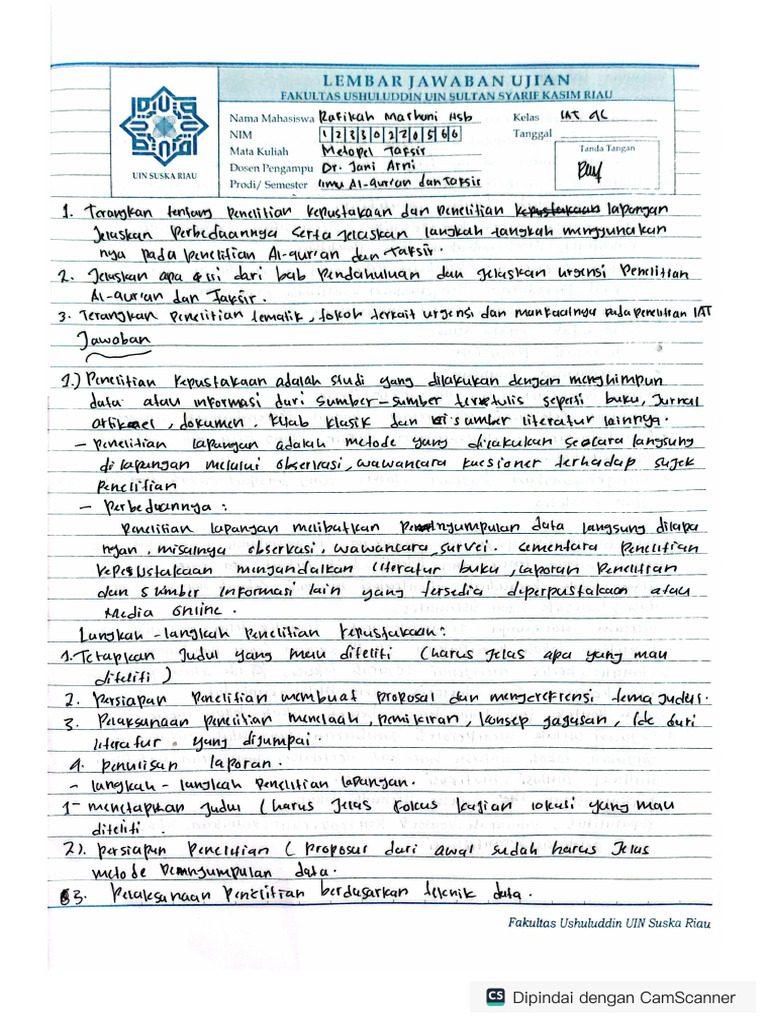 LEMBAR JAWABAN UJIAN
FAKULTAS USHULUDDIN UIN SULTAN SYARIF KASIM RIAU
UIN SUSKA RIAU
Nama Mahasiswa Rafikah Marhuni Hsb
NIM 12330220566
Mata Kuliah Metopel Tafsir
Dosen Pengampu Dr. Jani Arni
Prodi/ Semester Ilmu Al-qur'an dan Tafsir
Kelas IAT 4C
Tanggal
Tanda Tangan
1. Terangkan tentang Penelitian kepustakaan dan Penelitian kepustakaan lapangan
Jelaskan Perbedaannya serta Jelaskan langkah-langkah menggunakan
nya pada penelitian Al-qur'an dan Tafsir.
2. Jelaskan apa isi dari bab Pendahuluan dan Jelaskan urgensi Penelitian
Al-qur'an dan Tafsir.
3. Terangkan Penelitian tematik, tokoh terkait urgensi dan manfaatnya pada penelitian IAT
Jawaban
1.) Penelitian kepustakaan adalah studi yang dilakukan dengan menghimpun
data atau informasi dari sumber-sumber tertulis seperti buku, Jurnal
artikel, dokumen, kitab klasik dan sumber literatur lainnya.
- Penelitian lapangan adalah metode yang dilakukan secara langsung
di lapangan melalui observasi, wawancara kuesioner terhadap sujek
Penelitian
- Perbedaannya :
Penelitian lapangan melibatkan Pengumpulan data langsung dilapa
ngan, misalnya observasi, wawancara, survei. sementara Penelitian
kepustakaan mengandalkan literatur buku, laporan Penelitian
dan sumber informasi lain yang tersedia diperpustakaan atau
Media online.
Langkah-langkah Penelitian kepustakaan:
1. Tetapkan Judul yang mau diteliti (harus Jelas apa yang mau
diteliti)
2. Persiapan Penelitian membuat proposal dan mengereferensi tema judul.
3. Pelaksanaan Penelitian menelaah, pemikiran, konsep gagasan, Ide dari
literatur. yang dijumpai.
4. Penulisan laporan.
- langkah-langkah Penelitian lapangan.
1- menetapkan Judul (harus Jelas fokus kajian lokasi yang mau
diteliti.
2). persiapan Penelitian (Proposal dari awal sudah harus Jelas
metode Pemngumpulan data.
3. Pelaksanaan Penelitian berdasarkan teknik data.
Fakultas Ushuluddin UIN Suska Riau
CS Dipindai dengan CamScanner